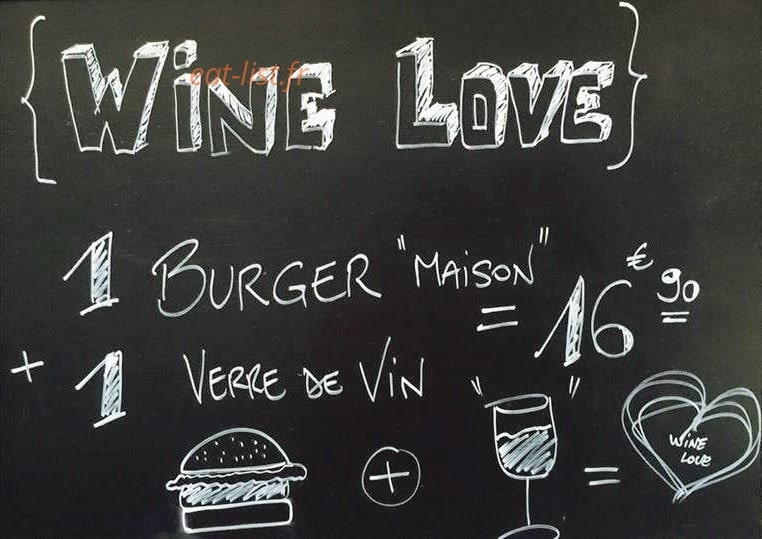 { WiNE LOVE }
eat-list.fr
1 BURGER "MAiSON"
= 16€90
+ 1 VERRE DE ViN
+ " " =
WiNE
LOVE